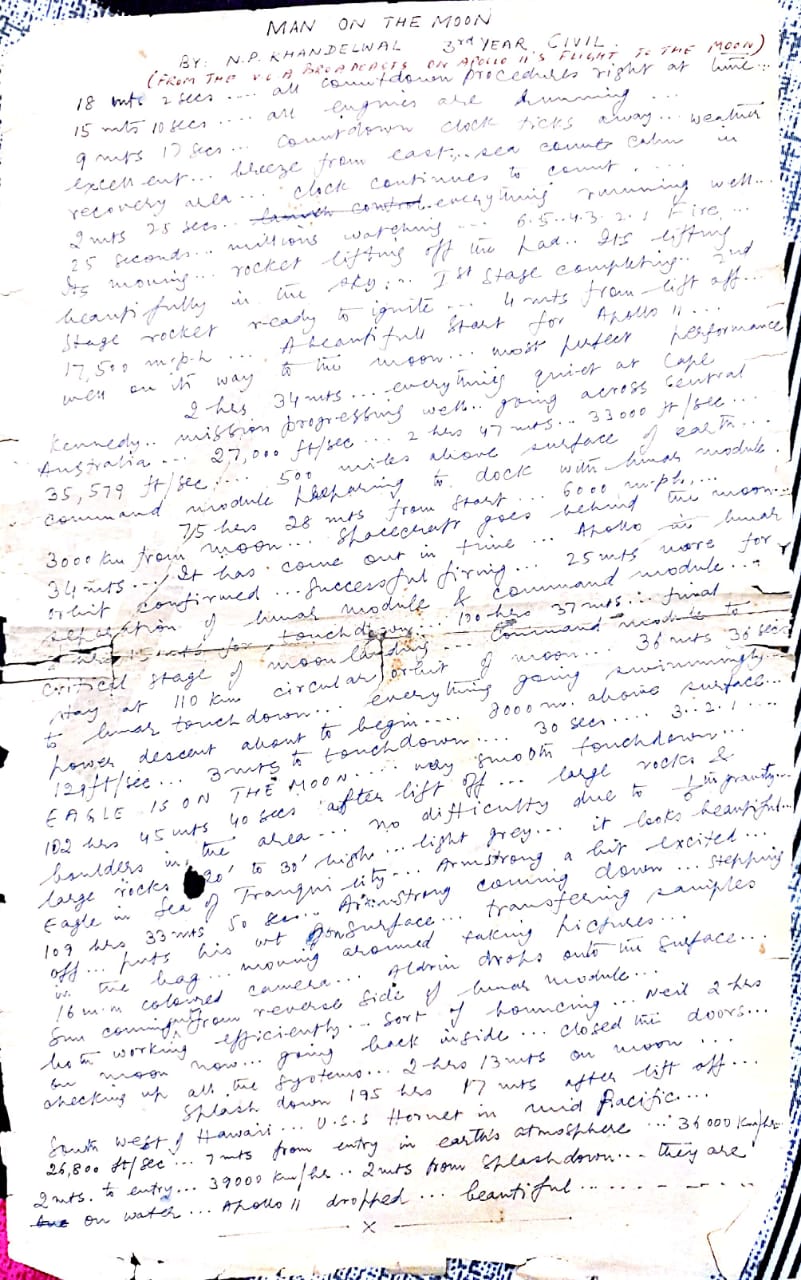 MAN ON THE MOON
BY: N.P. KHANDELWAL 3rd YEAR CIVIL
(FROM THE V.O.A BROADCASTS ON APOLLO 11'S FLIGHT TO THE MOON)
18 mts 2 secs .... all countdown procedures right at time...
15 mts 10 secs .... all engines are running ...
9 mts 17 secs... countdown clock ticks away... weather
excellent... breeze from east... sea calm in
recovery area.... clock continues to count ....
2 mts 25 secs... everything running well...
25 seconds... millions watching .... 6.5..4.3.2.1 Fire...
Its moving... rocket lifting off the pad.. Its lifting
beautifully in the sky... Ist stage completing.. 2nd
stage rocket ready to ignite ... 4 mts from lift off...
17,500 m.p.h .... A beautifull start for Apollo 11 ...
well on its way to the moon... most perfect performance
2 hrs 34 mts ... everything quiet at Cape
Kennedy.. mission progressing well.. going across Central
Australia ... 27,000 ft/sec ... 2 hrs 47 mts... 33000 ft/sec...
35,579 ft/sec.... 500 miles above surface of earth...
command module preparing to dock with lunar module.
75 hrs 28 mts from start... 6000 m.p.h....
3000 km from moon... spacecraft goes behind the moon...
34 mts... It has come out in time ... Apollo in lunar
orbit confirmed ... Successful firing... 25 mts more for
separation of lunar module & command module...
15 mts for touchdown... 100 hrs 37 mts.. final
critical stage of moon landing ... Command module to
stay at 110 km circular orbit of moon... 36 mts 36 secs
to lunar touchdown... everything going swimmingly...
power descent about to begin.... 2000 m. above surface...
129 ft/sec... 3 mts to touchdown.... 30 secs.... 3..2.1....
EAGLE IS ON THE MOON..... very smooth touchdown...
102 hrs 45 mts 40 secs after lift off ... large rocks &
boulders in the area... no difficulty due to 1/6 th gravity...
large rocks 20' to 30' high... light grey... it looks beautiful...
Eagle in Sea of Tranquility... Armstrong a bit excited...
109 hrs 33 mts 50 sec... Armstrong coming down... stepping
off... puts his wt on surface... transfering samples
in the bag... moving around taking pictures...
16 m.m coloured camera... Aldrin drops onto the surface...
Sun coming from reverse side of lunar module...
both working efficiently... sort of bouncing... Neil 2 hrs
on moon now... going back inside... closed the doors...
checking up all the systems... 2 hrs 13 mts on moon ...
Splash down 195 hrs 17 mts after lift off...
South west of Hawaii... U.S.S Hornet in mid Pacific...
26,800 ft/sec... 7 mts from entry in earth's atmosphere ... 36000 km/hr
2 mts. to entry... 39000 km/hr.. 2 mts from splashdown... they are
on water ... Apollo 11 dropped ... beautiful ...........
X